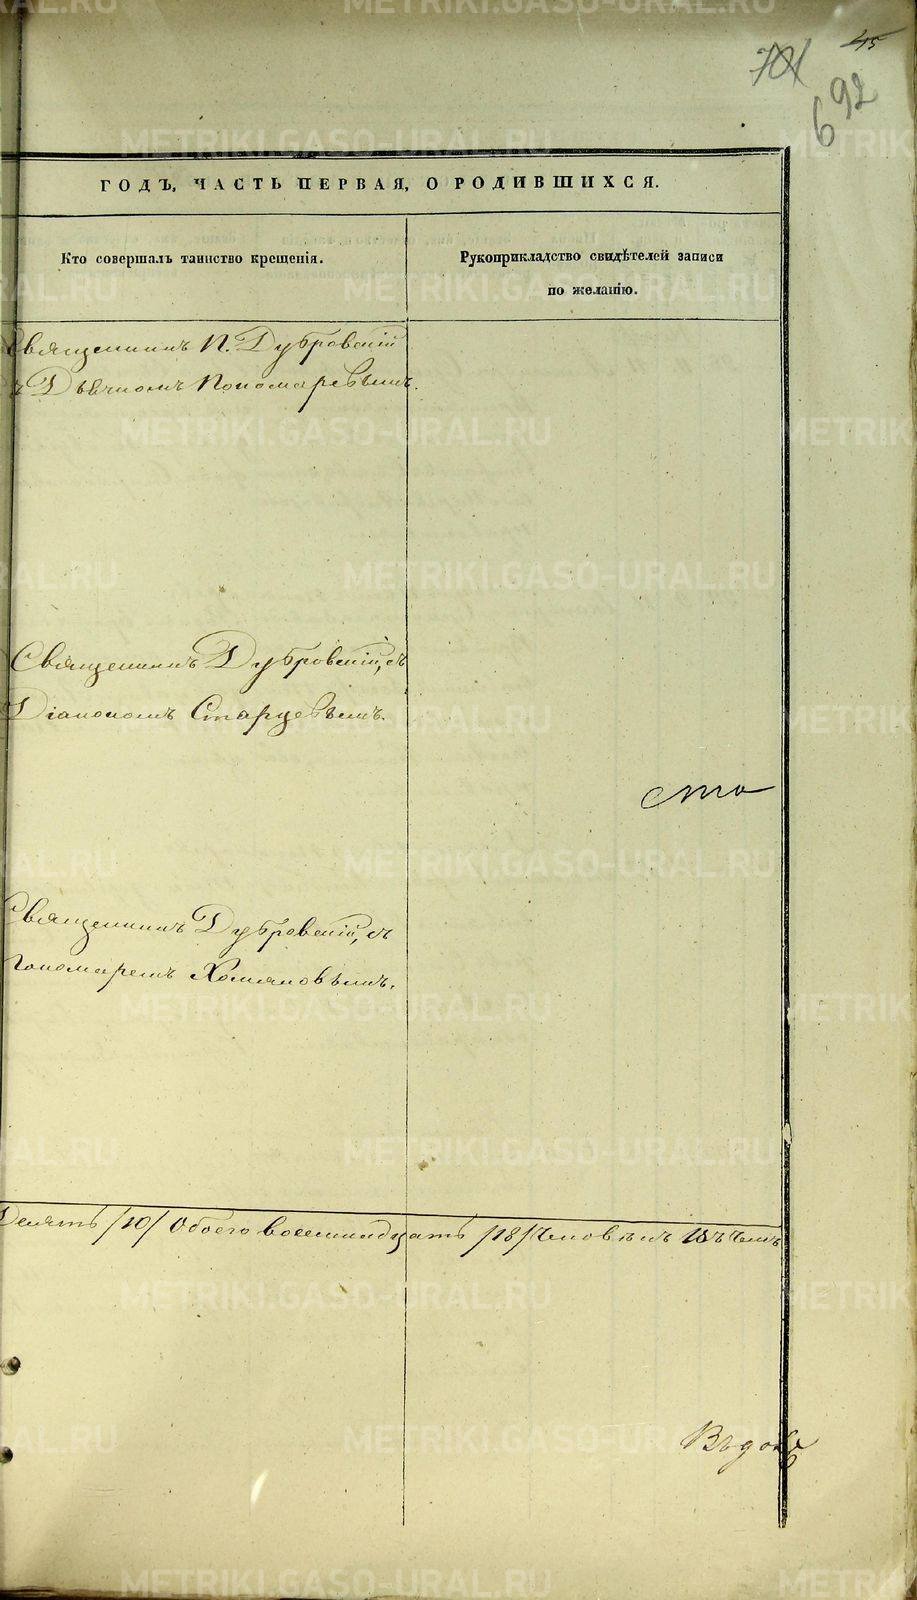 45
701
692
ГОДЪ, ЧАСТЬ ПЕРВАЯ, О РОДИВШИХСЯ.
Кто совершалъ таинство крещенія.
Рукоприкладство свидѣтелей записи
по желанію.
Священникъ П. Дубровскій
съ Дьячкомъ Пономаревымъ.
Священникъ Дубровскій, съ
Діакономъ Старцевымъ.
сто
Священникъ Дубровскій, съ
Пономаремъ Хомяковымъ.
/10/ Обоего восемнадцать /18/ Человѣкъ
METRIKI.GASO-URAL.RU